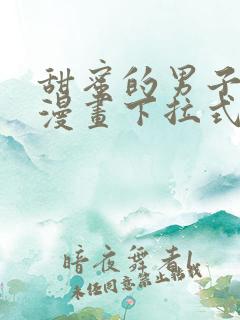 甜蜜的男子
漫畫下拉式
暗夜舞者l
未经同意禁止転载